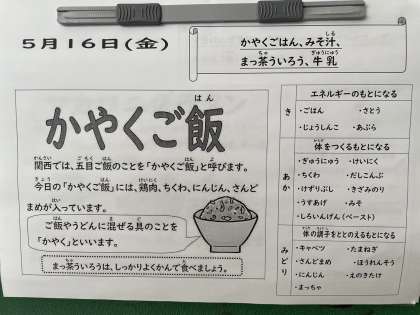 5月16日(金)
かやくごはん、みそ汁、
まっ茶ういろう、牛乳
かやくご飯
関西では、五目ご飯のことを「かやくご飯」と呼びます。
今日の「かやくご飯」には、鶏肉、ちくわ、にんじん、さんど
まめが入っています。
ご飯やうどんに混ぜる具のことを
「かやく」といいます。
まっ茶ういろうは、しっかりよくかんで食べましょう。
エネルギーのもとになる
き
・ごはん ・さとう
・じょうしんこ ・あぶら
体をつくるもとになる
あか
・ぎゅうにゅう ・けいにく
・ちくわ ・だしこんぶ
・けずりぶし ・きざみのり
・うすあげ ・みそ
・しろいんげん(ペースト)
体の調子をととのえるもとになる
みどり
・キャベツ ・たまねぎ
・さんどまめ ・ほうれんそう
・にんじん ・えのきたけ
・まっちゃ